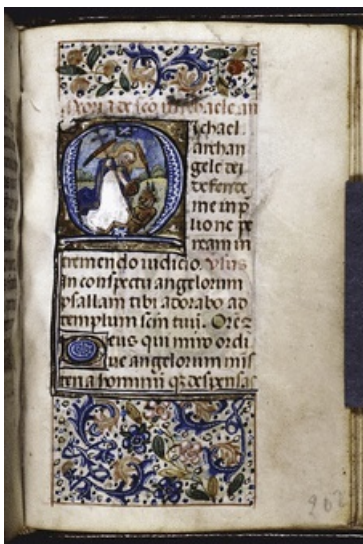 ichael
archan
gele dei
defende
me in p
lio ne pe
ream in
tremendo iudicio. V̄sus
In conspectu angelorum
psallam tibi adorabo ad
templum scm tuū. Orez
eus qui miro ordi
ne angelorum mis
teria hominū qz despensas
202